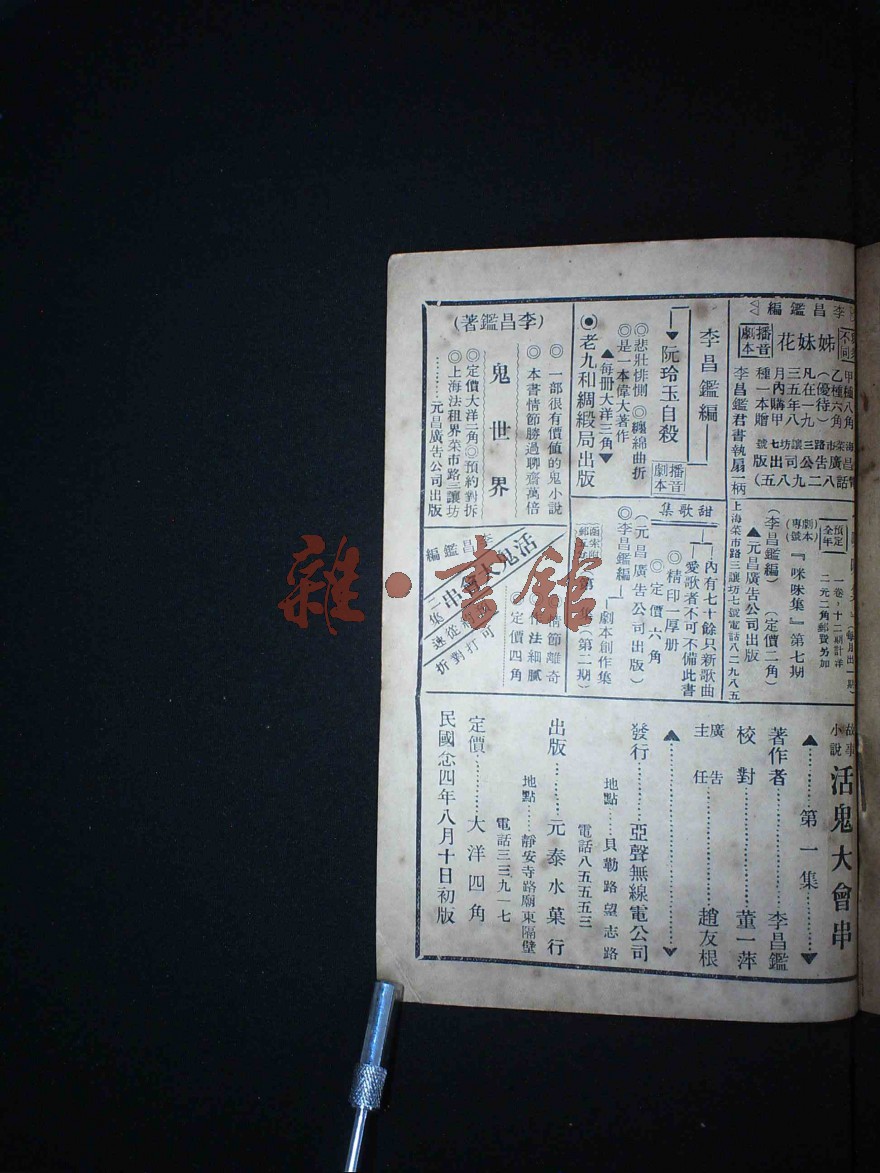 李昌鑑編
姊妹花
播音劇本
不同
甲種八角
乙種六角
(優待)
凡在一九
三五年八
月內購甲
種一本贈
李昌鑑君書執扇一柄
上海菜市路三讓坊七號電話八二九八五
李昌鑑編
▼阮玲玉自殺
播音劇本
◎悲壯悱惻 ◎纏綿曲折
◎是一本偉大著作
▲每册大洋三角▼
◉老九和綢緞局出版
(李昌鑑著)
鬼世界
◎一部很有價値的鬼小說
◎本書情節勝過聊齋萬倍
◎定價大洋二角◎預約對拆
◎上海法租界菜市路三讓坊
……元昌廣告公司出版
預定全年
一卷·十二期計洋
二元二角郵費另加
劇本專號
『咪咪集』第七期
(李昌鑑編)(定價二角)
▲元昌廣告公司出版
甜歌集
——內有七十餘只新歌曲
——愛歌者不可不備此書
◎精印一厚册
◎定價六角
(元昌廣告公司出版)
◎李昌鑑編——
劇本創作集
(第二期)
李昌鑑編
活鬼大會串
二集
情節離奇
作法細膩
◎定價四角
從速
可打對折
故事小說
活鬼大會串
▲……第一集……▲
著作者………李昌鑑
校對………董一萍
廣告主任………趙友根
發行………亞聲無線電公司
地點……貝勒路望志路
電話八五五五三
出版……元泰水菓行
地點……靜安寺路廟東隔壁
電話三三九一七
定價………大洋四角
民國念四年八月十日初版
雜·書館